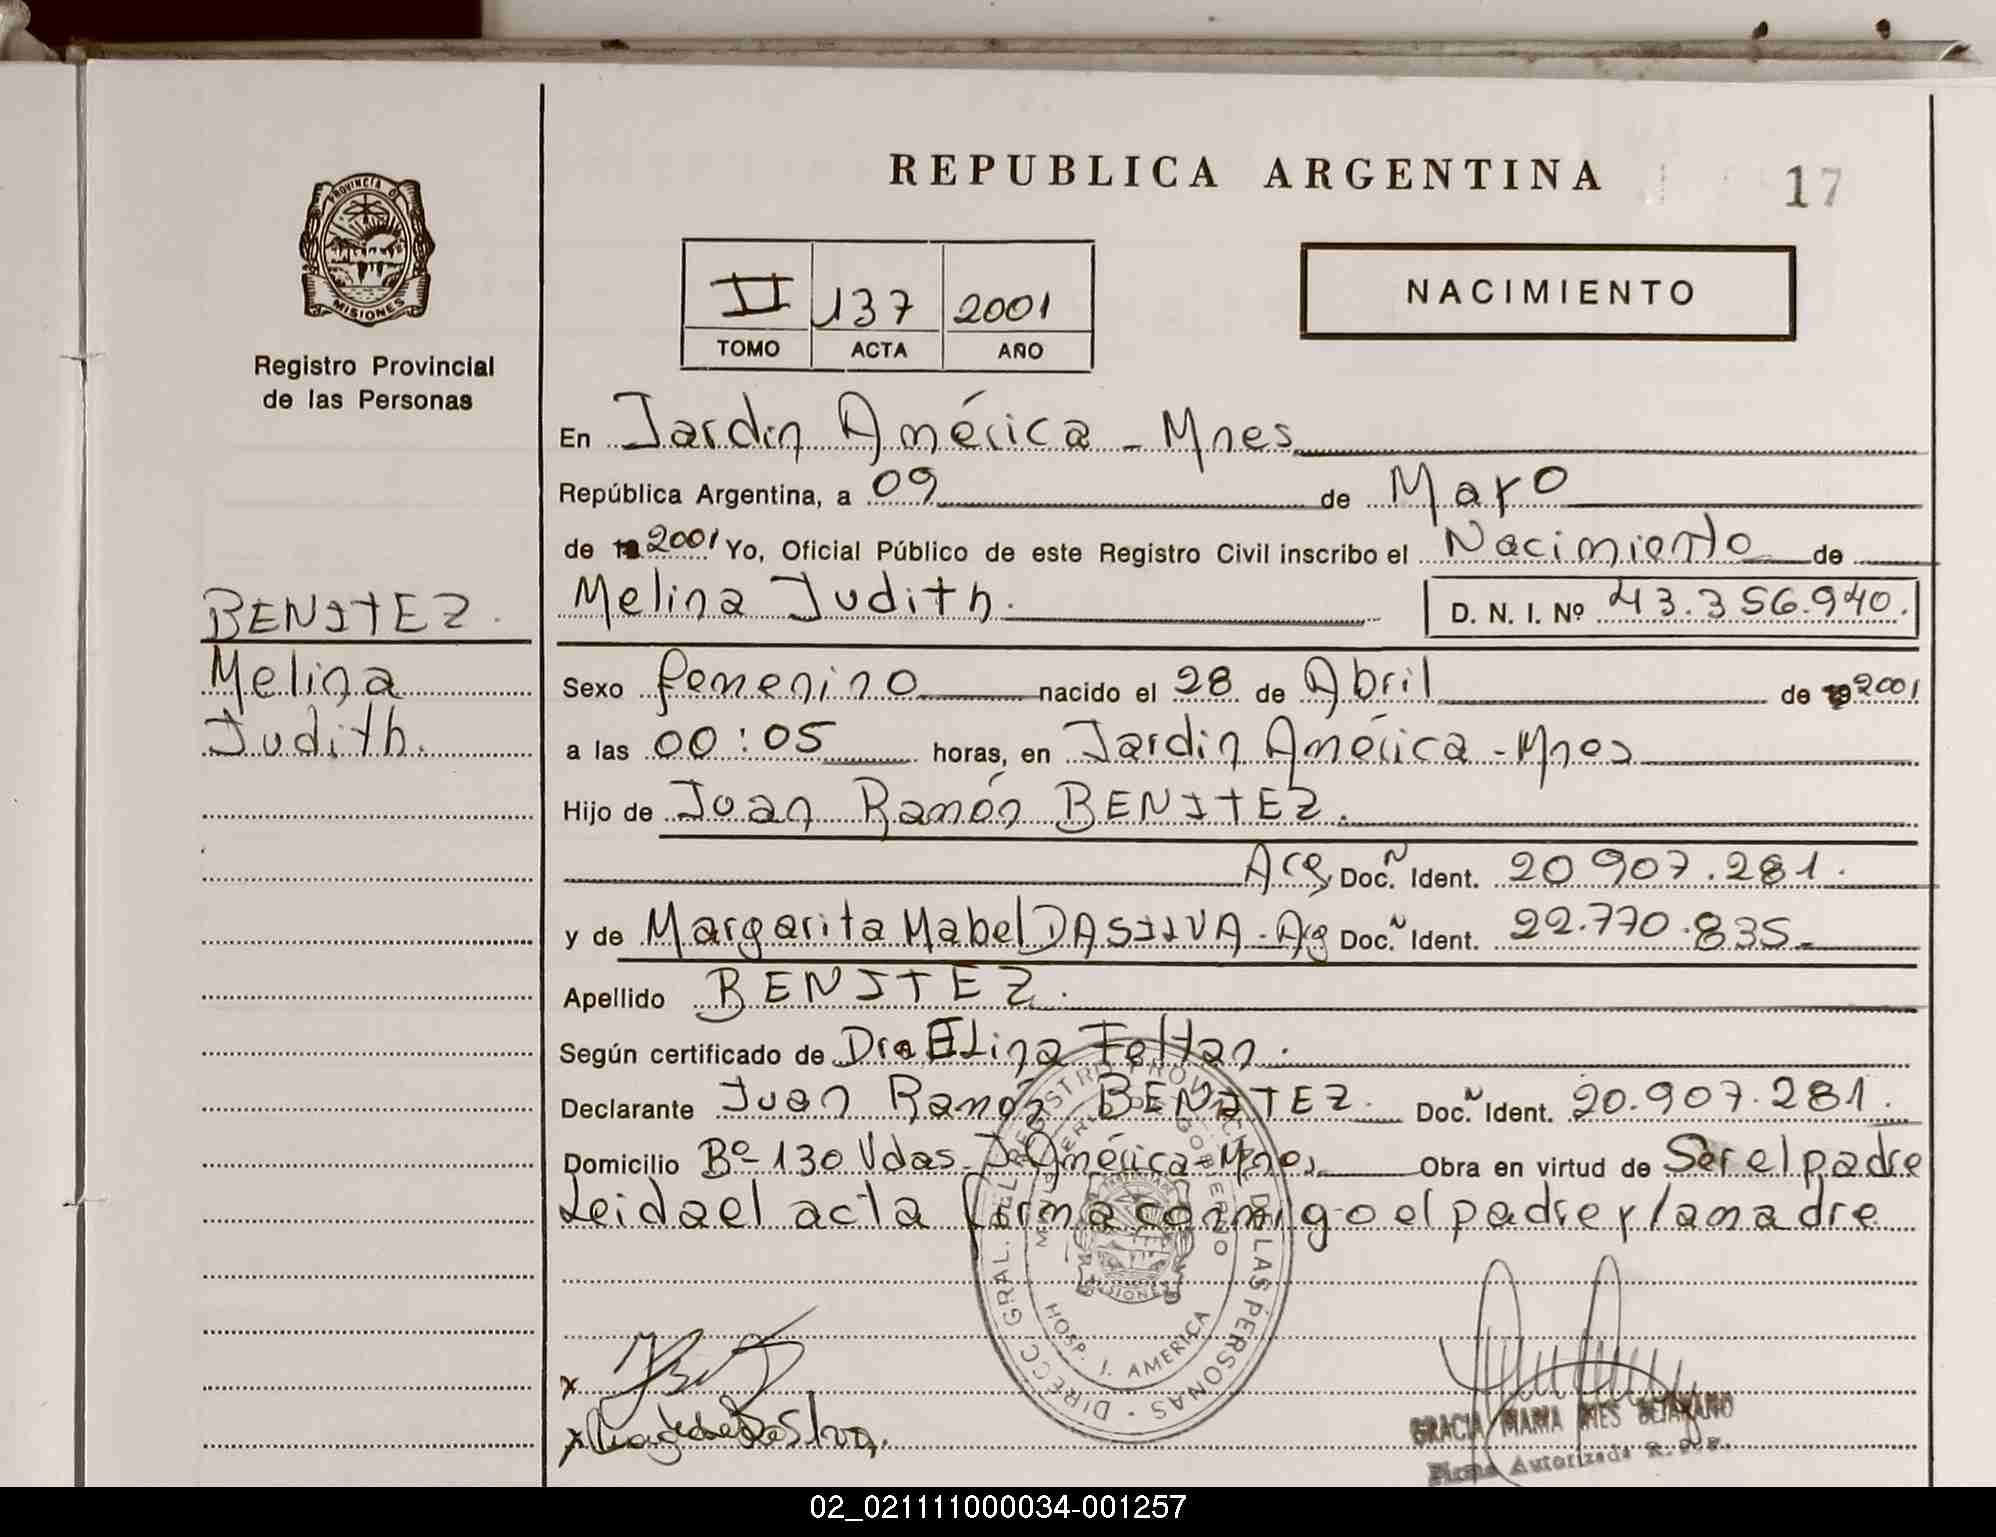 REPUBLICA ARGENTINA
17
PROVINCIA DE
MISIONES
Registro Provincial
de las Personas
II 137 2001
TOMO ACTA AÑO
NACIMIENTO
En Jardin América - Mnes
República Argentina, a 09 de Mayo
de 2001 Yo, Oficial Público de este Registro Civil inscribo el Nacimiento de
BENITEZ.
Melina
Judith.
Melina Judith. D. N. I. Nº 43.356.940.
Sexo femenino nacido el 28 de Abril de 2001
a las 00:05 horas, en Jardin América - Mnes
Hijo de Juan Ramón BENITEZ.
Arg Doc. N Ident. 20 907.281.
y de Margarita Mabel DASILVA - Arg Doc. N Ident. 22.770.835-
Apellido BENITEZ.
Según certificado de Dra Elina Feltan.
Declarante Juan Ramón BENITEZ. Doc. N Ident. 20.907.281.
Domicilio Bº 130 Vdas. J. América - Mnes Obra en virtud de Ser el padre
Leida el acta firma conmigo el padre y la madre
DIRECC GRAL. DEL REGISTRO PROVINCIAL DE LAS PERSONAS
HOSP. J. AMERICA
MISIONES
x
x
GRACIA MARIA INES BEJARANO
Firma Autorizada R.P.P.
02_021111000034-001257